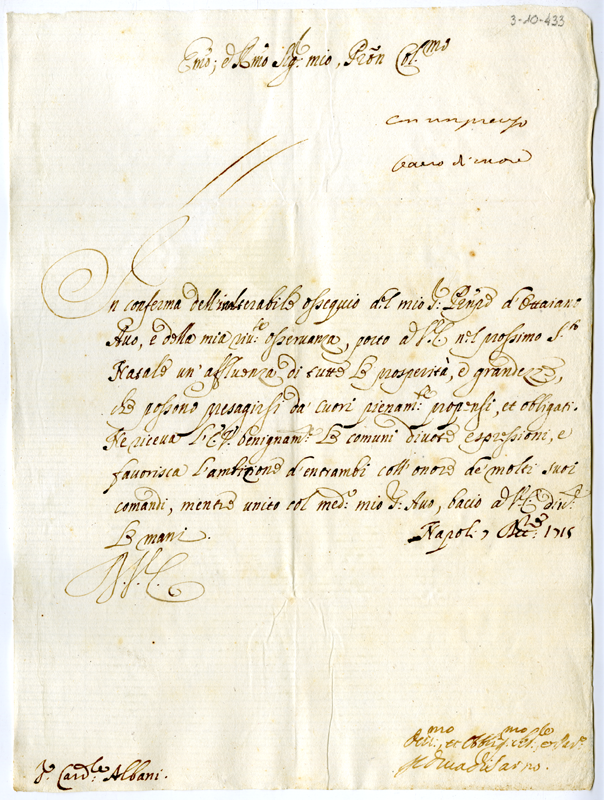 3-10-433
Emo, e Rmo Sig.r mio, Pron Col.mo
con un
bacio di cuore
In conferma dell'inalterabile ossequio del mio S.r Pen̄pe d'Ottaiano
Avo, e della mia riu.te osservanza, porto a V.E. nel prossimo S.to
Natale un' affluenza di tutte le prosperità, e grandezze,
che possono presagirsi da cuori pienam.te propensi, et obligati.
Ne riceva l'E.V. benignam.te le comuni divote espressioni, e
favorisca l'ambizione d'entrambi coll'onore de' molti suoi
comandi, mentre unito col med.o mio S.r Avo, bacio a V.E. div.te
le mani.
Napoli 7 Xbre 1715
D.V.E.
Div.mo et Obblig.mo
il Duca di Sarno
S.r Card.le Albani.